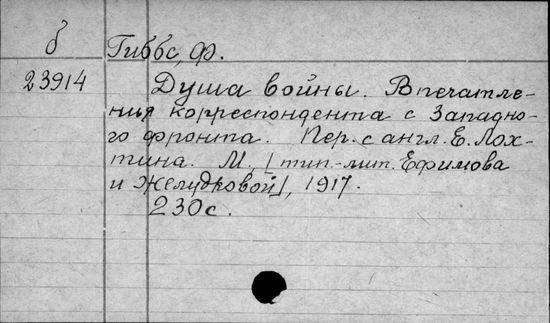 б Гиббс, Ф.
23914 Душа войны. Впечатле-
ния корреспондента с Западно-
го фронта. Пер. с англ. Е. Лох-
тина. М. [тип.-лит. Ефимова
и Желудковой], 1917.
230 с.